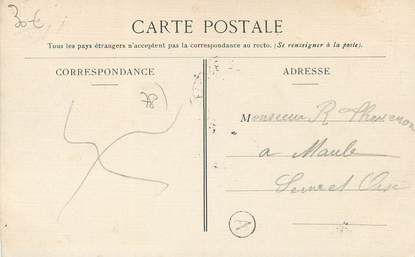 30€
CARTE POSTALE
Tous les pays étrangers n'acceptent pas la correspondance au recto. (Se renseigner à la poste).
CORRESPONDANCE
ADRESSE
78)
Monsieur R. Thevenon
a Maule
Seine et Oise
A